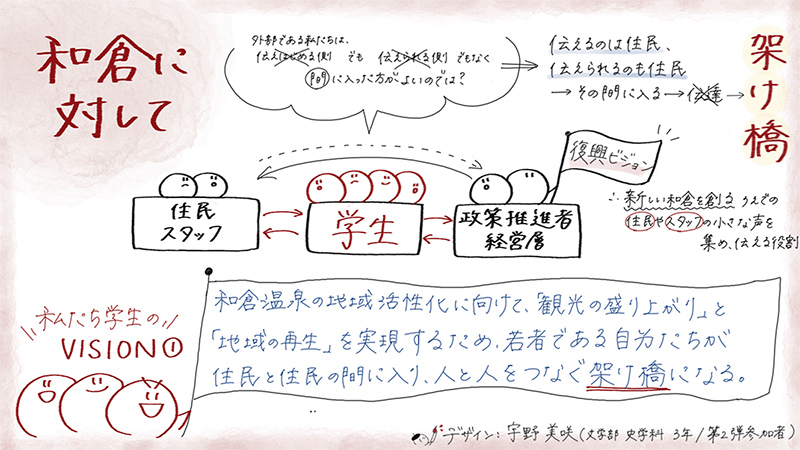 和倉に
対して
外部である私たちは、
伝えはじめる側 でも 伝えられる側 でもなく
間に入った方がよいのでは？
伝えるのは住民、
伝えられるのも住民
→その間に入る→伝達→
架け橋
復興ビジョン
∴新しい和倉を創るうえでの
住民やスタッフの小さな声を
集め、伝える役割
住民
スタッフ
学生
政策推進者
経営層
私たち学生の
VISION①
和倉温泉の地域活性化に向けて、「観光の盛り上がり」と
「地域の再生」を実現するため、若者である自分たちが
住民と住民の間に入り、人と人をつなぐ架け橋になる。
デザイン：宇野 美咲（文学部 史学科 3年/第2弾参加者）